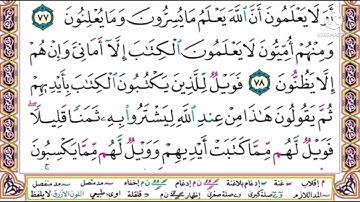 أَوَلَا يَعْلَمُونَ أَنَّ ٱللَّهَ يَعْلَمُ مَا يُسِرُّونَ وَمَا يُعْلِنُونَ ٧٧
وَمِنْهُمْ أُمِّيُّونَ لَا يَعْلَمُونَ ٱلْكِتَٰبَ إِلَّآ أَمَانِىَّ وَإِنْ هُمْ
إِلَّا يَظُنُّونَ ٧٨ فَوَيْلٌ لِّلَّذِينَ يَكْتُبُونَ ٱلْكِتَٰبَ بِأَيْدِيهِمْ
ثُمَّ يَقُولُونَ هَٰذَا مِنْ عِندِ ٱللَّهِ لِيَشْتَرُوا۟ بِهِۦ ثَمَنًا قَلِيلًا ۖ
فَوَيْلٌ لَّهُم مِّمَّا كَتَبَتْ أَيْدِيهِمْ وَوَيْلٌ لَّهُم مِّمَّا يَكْسِبُونَ